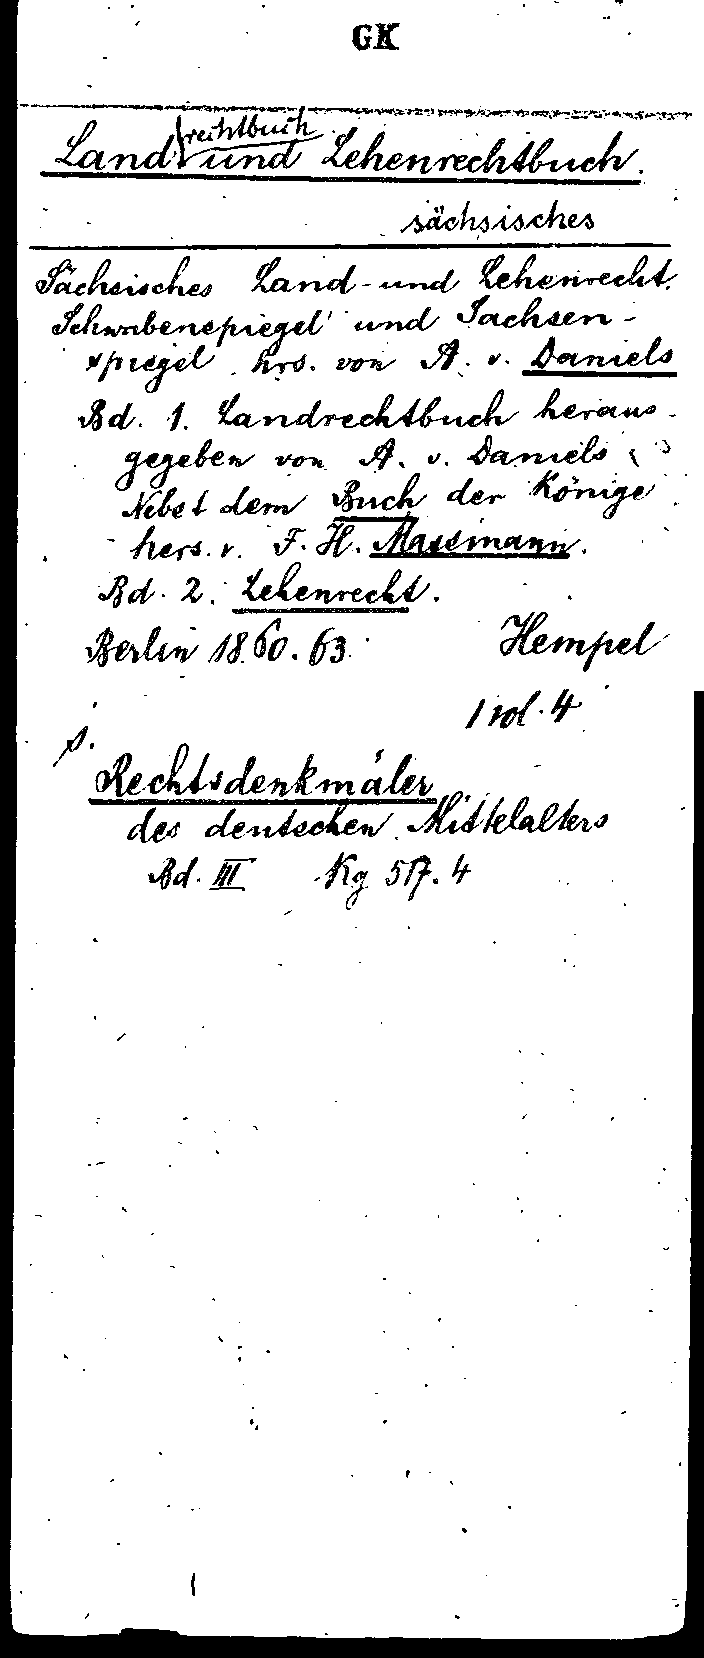 GK
Landrechtbuch und Lehenrechtbuch.
sächsisches
Sächsisches Land- und Lehenrecht.
Schwabenspiegel und Sachsen-
spiegel hrs. von A. v. Daniels
Bd. 1. Landrechtbuch heraus-
gegeben von A. v. Daniels
Nebst dem Buch der Könige
hers. v. F. H. Massmann.
Bd. 2. Lehenrecht.
Berlin 1860.63. Hempel
1 vol. 4
s.
Rechtsdenkmäler
des deutschen Mittelalters
Bd. III Kg 517.4